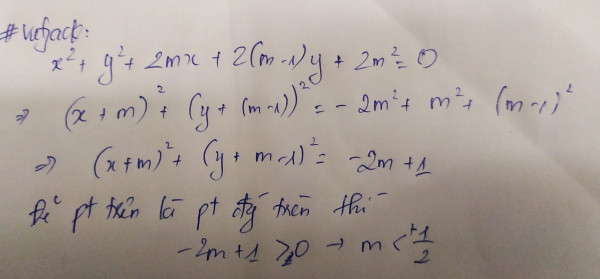 #vietjack:
x² + y² + 2mx + 2(m-1)y + 2m² = 0
⇒ (x + m)² + (y + (m-1))² = - 2m² + m² + (m-1)²
⇒ (x+m)² + (y + m-1)² = -2m + 1
Để pt trên là pt đg tròn thì
-2m + 1 > 0 → m < +1/2